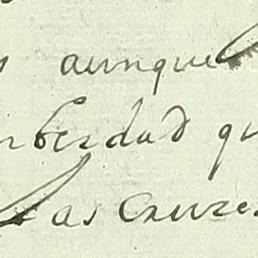 aunque
berdad qu
las cruze